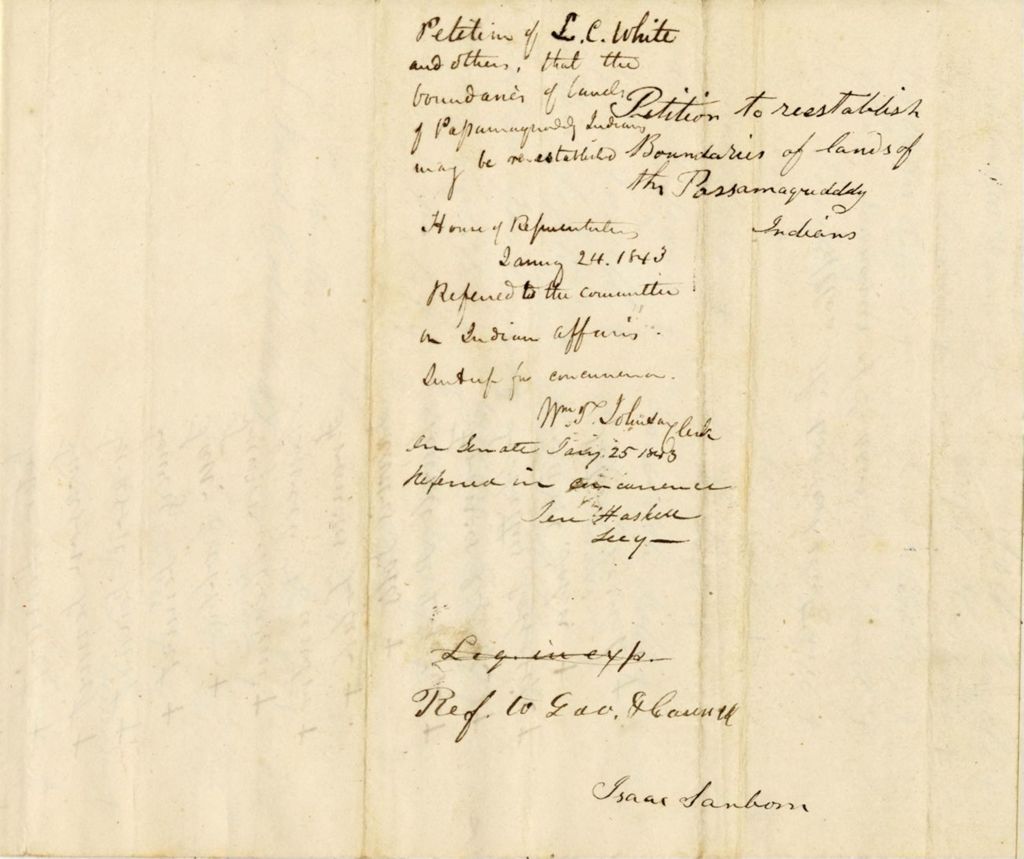 Petition of L. C. White
and others, that the
boundaries of lands
of Passamaquoddy Indians
may be re-established
Petition to reestablish
Boundaries of lands of
the Passamaquddy
Indians
House of Representatives
January 24. 1843
Referred to the committee
on Indian affairs.
Sent up for concurrence.
Wm. T. Johnson Clerk
In Senate Jany. 25 1843
Referred in concurrence
Jere Haskell
Secy
Leg. in exp.
Ref. to Gov. & Council
Isaac Sanborn